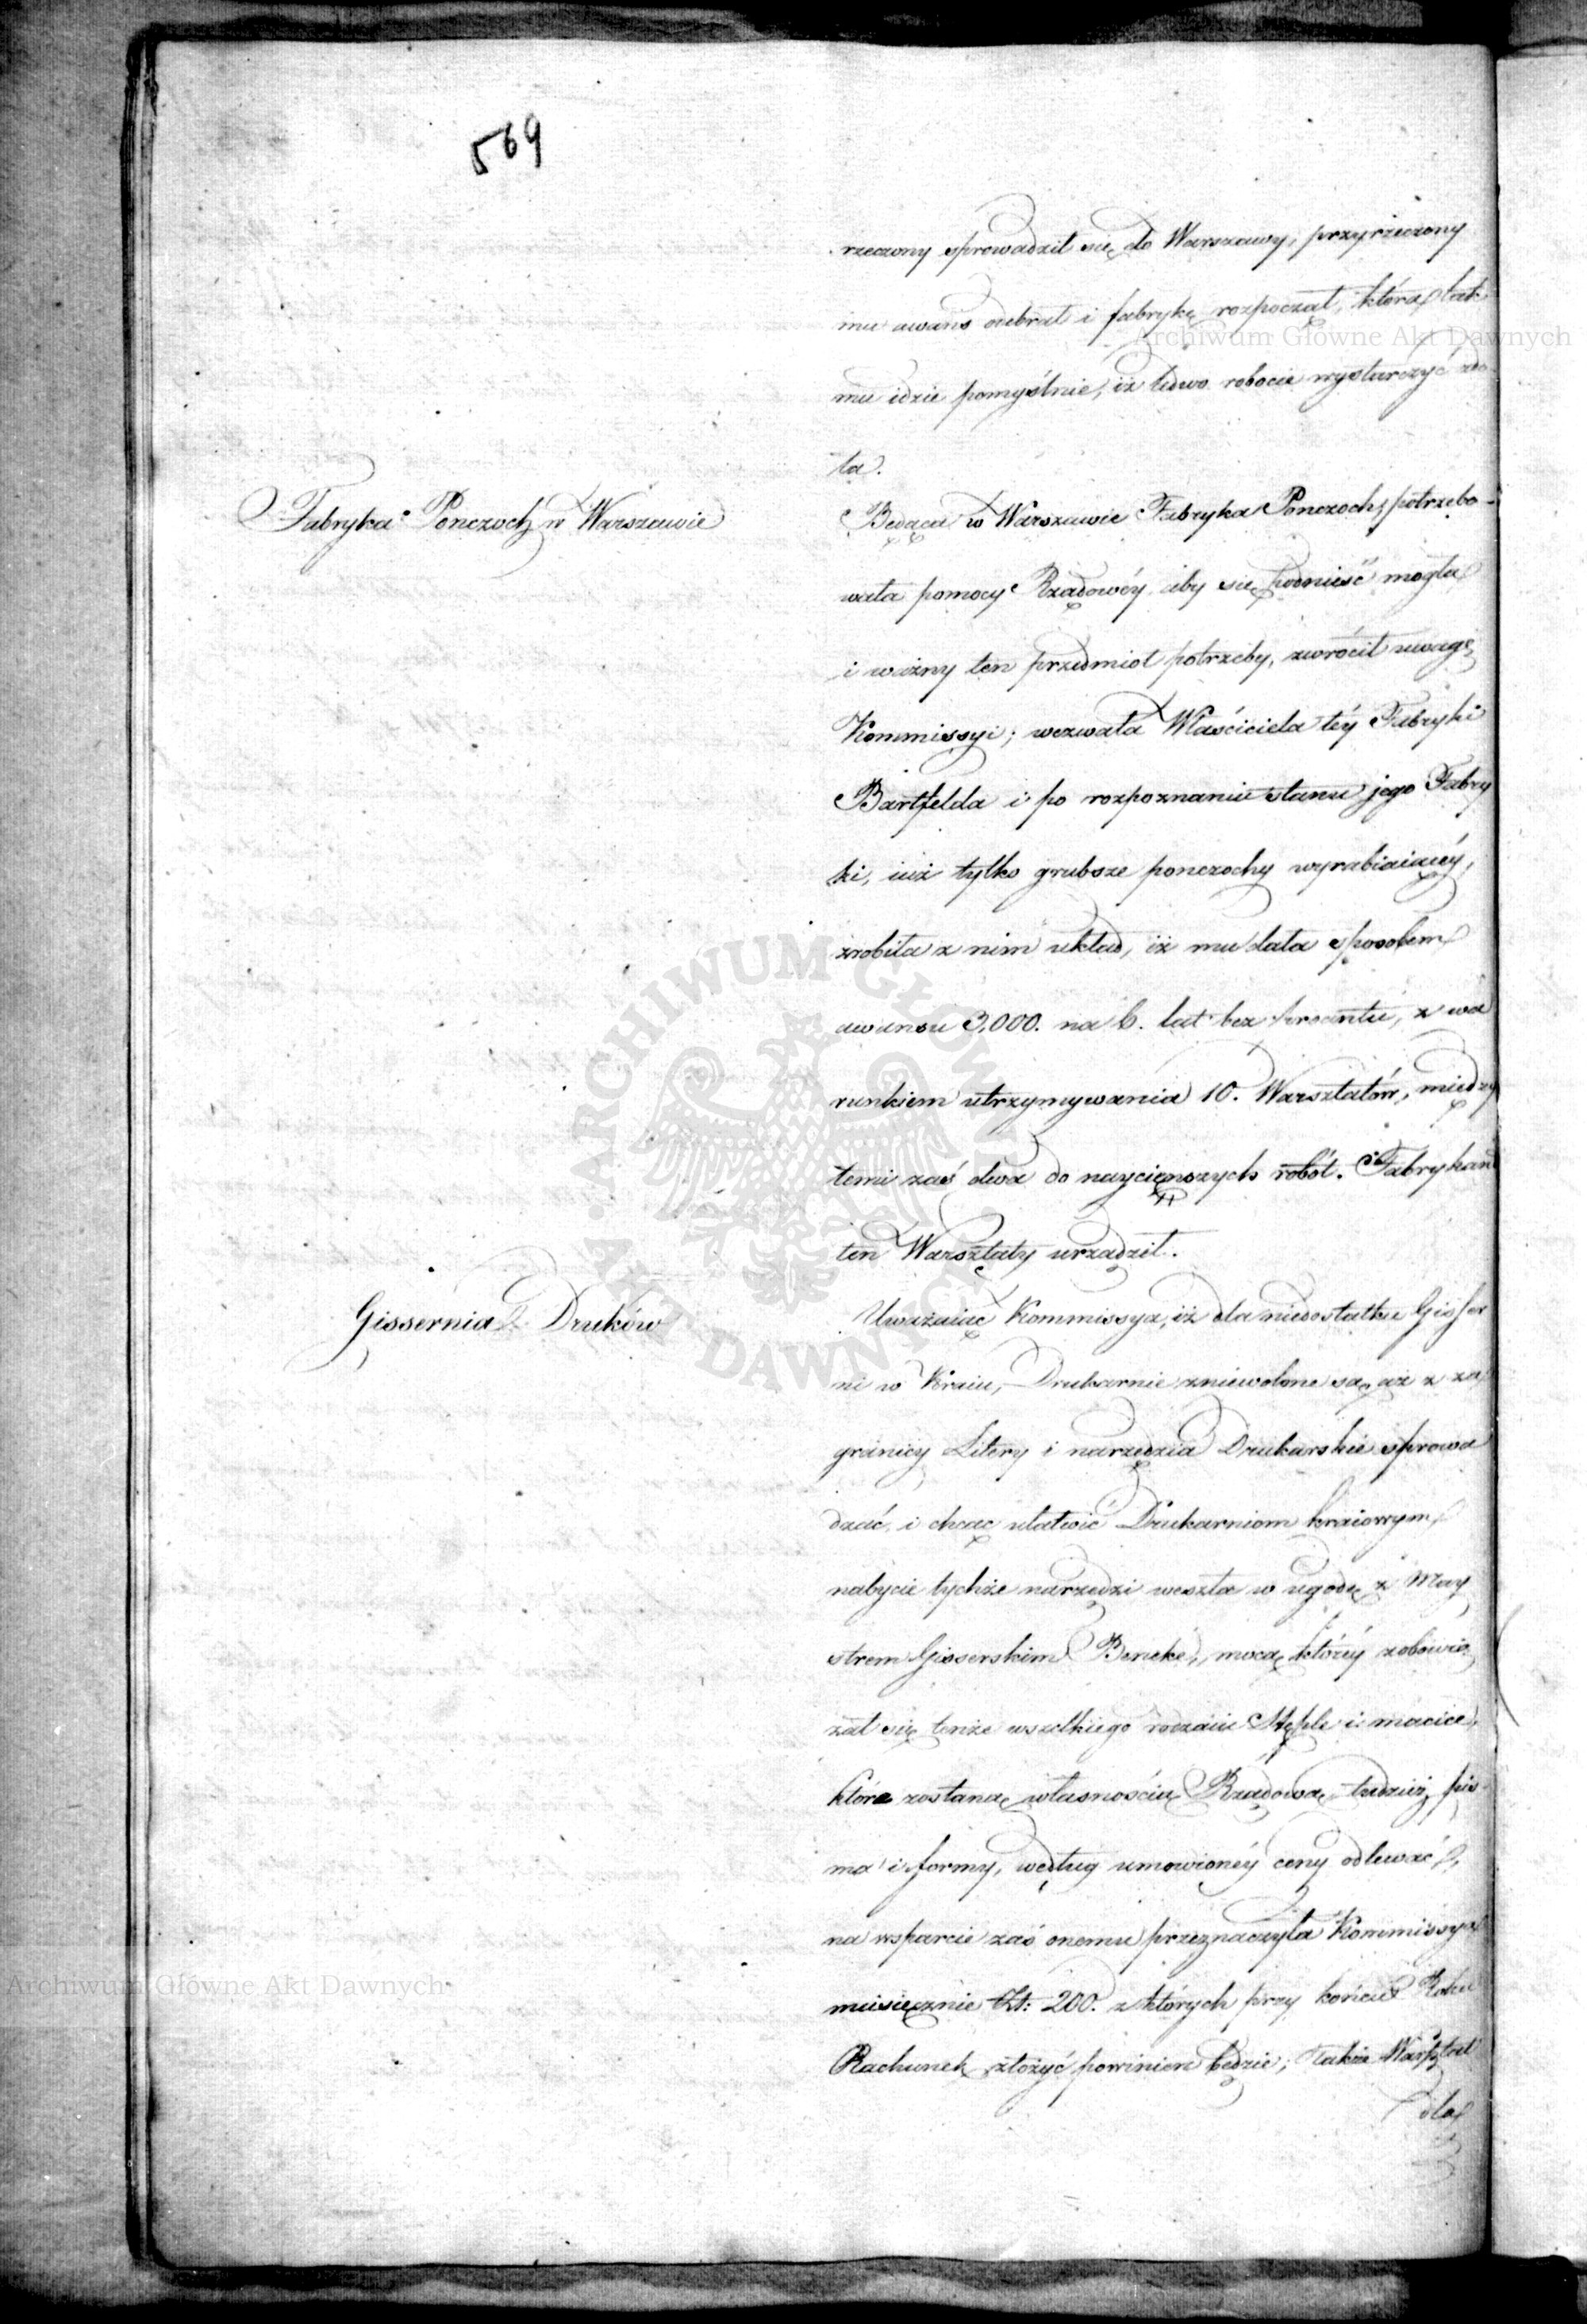 569
rzeczony sprowadził się do Warszawy, przyrzeczony
mu awans odebrał i fabrykę rozpoczął, która tak
mu idzie pomyślnie, iż ledwo robocie wystarczyć zdo
ła.
Fabryka Ponczoch w Warszawie
Będąca w Warszawie Fabryka Ponczoch, potrzebo-
wała pomocy Rządowéy aby się podnieść mogła
i ważny ten przedmiot potrzeby, zwrócił uwagę
Kommissyi; wezwała Właściciela téy Fabryki
Bartfelda i po rozpoznaniu stanu jego Fabry
ki, iuż tylko grubsze ponczochy wyrabiaiącéy,
zrobiła z nim układ, iż mu dała sposobem
awansu 3,000. na 6. lat bez procentu, z wa
runkiem utrzymywania 10. Warsztatów, między
temi zaś dwa do naycięnszych robót. Fabrykant
ten Warsztaty urządził.
Gissernia Druków
Uważaiąc Kommissya, iż dla niedostatku Gisser
ni w Kraiu, Drukarnie zniewolone są aż z za
granicy Litery i narzędzia Drukarskie sprowa
dzać, i chcąc ułatwić Drukarniom kraiowym
nabycie tychże narzędzi weszła w ugodę z May
strem Gisserskim Beneke, mocą któréy zobowią
zał się tenże wszelkiego rodzaiu Stęple i macice,
które zostaną własnością Rządową, tudzież pis-
ma i formy, według umowionéy ceny odlewać,
na wsparcie zaś onemu przeznaczyła Kommissya
miesięcznie Zł: 200. z których przy końcu Roku
Rachunek złożyć powinien będzie; także Warsztat
dla
Archiwum Główne Akt Dawnych
Archiwum Główne Akt Dawnych
ARCHIWUM GŁÓWNE AKT DAWNYCH